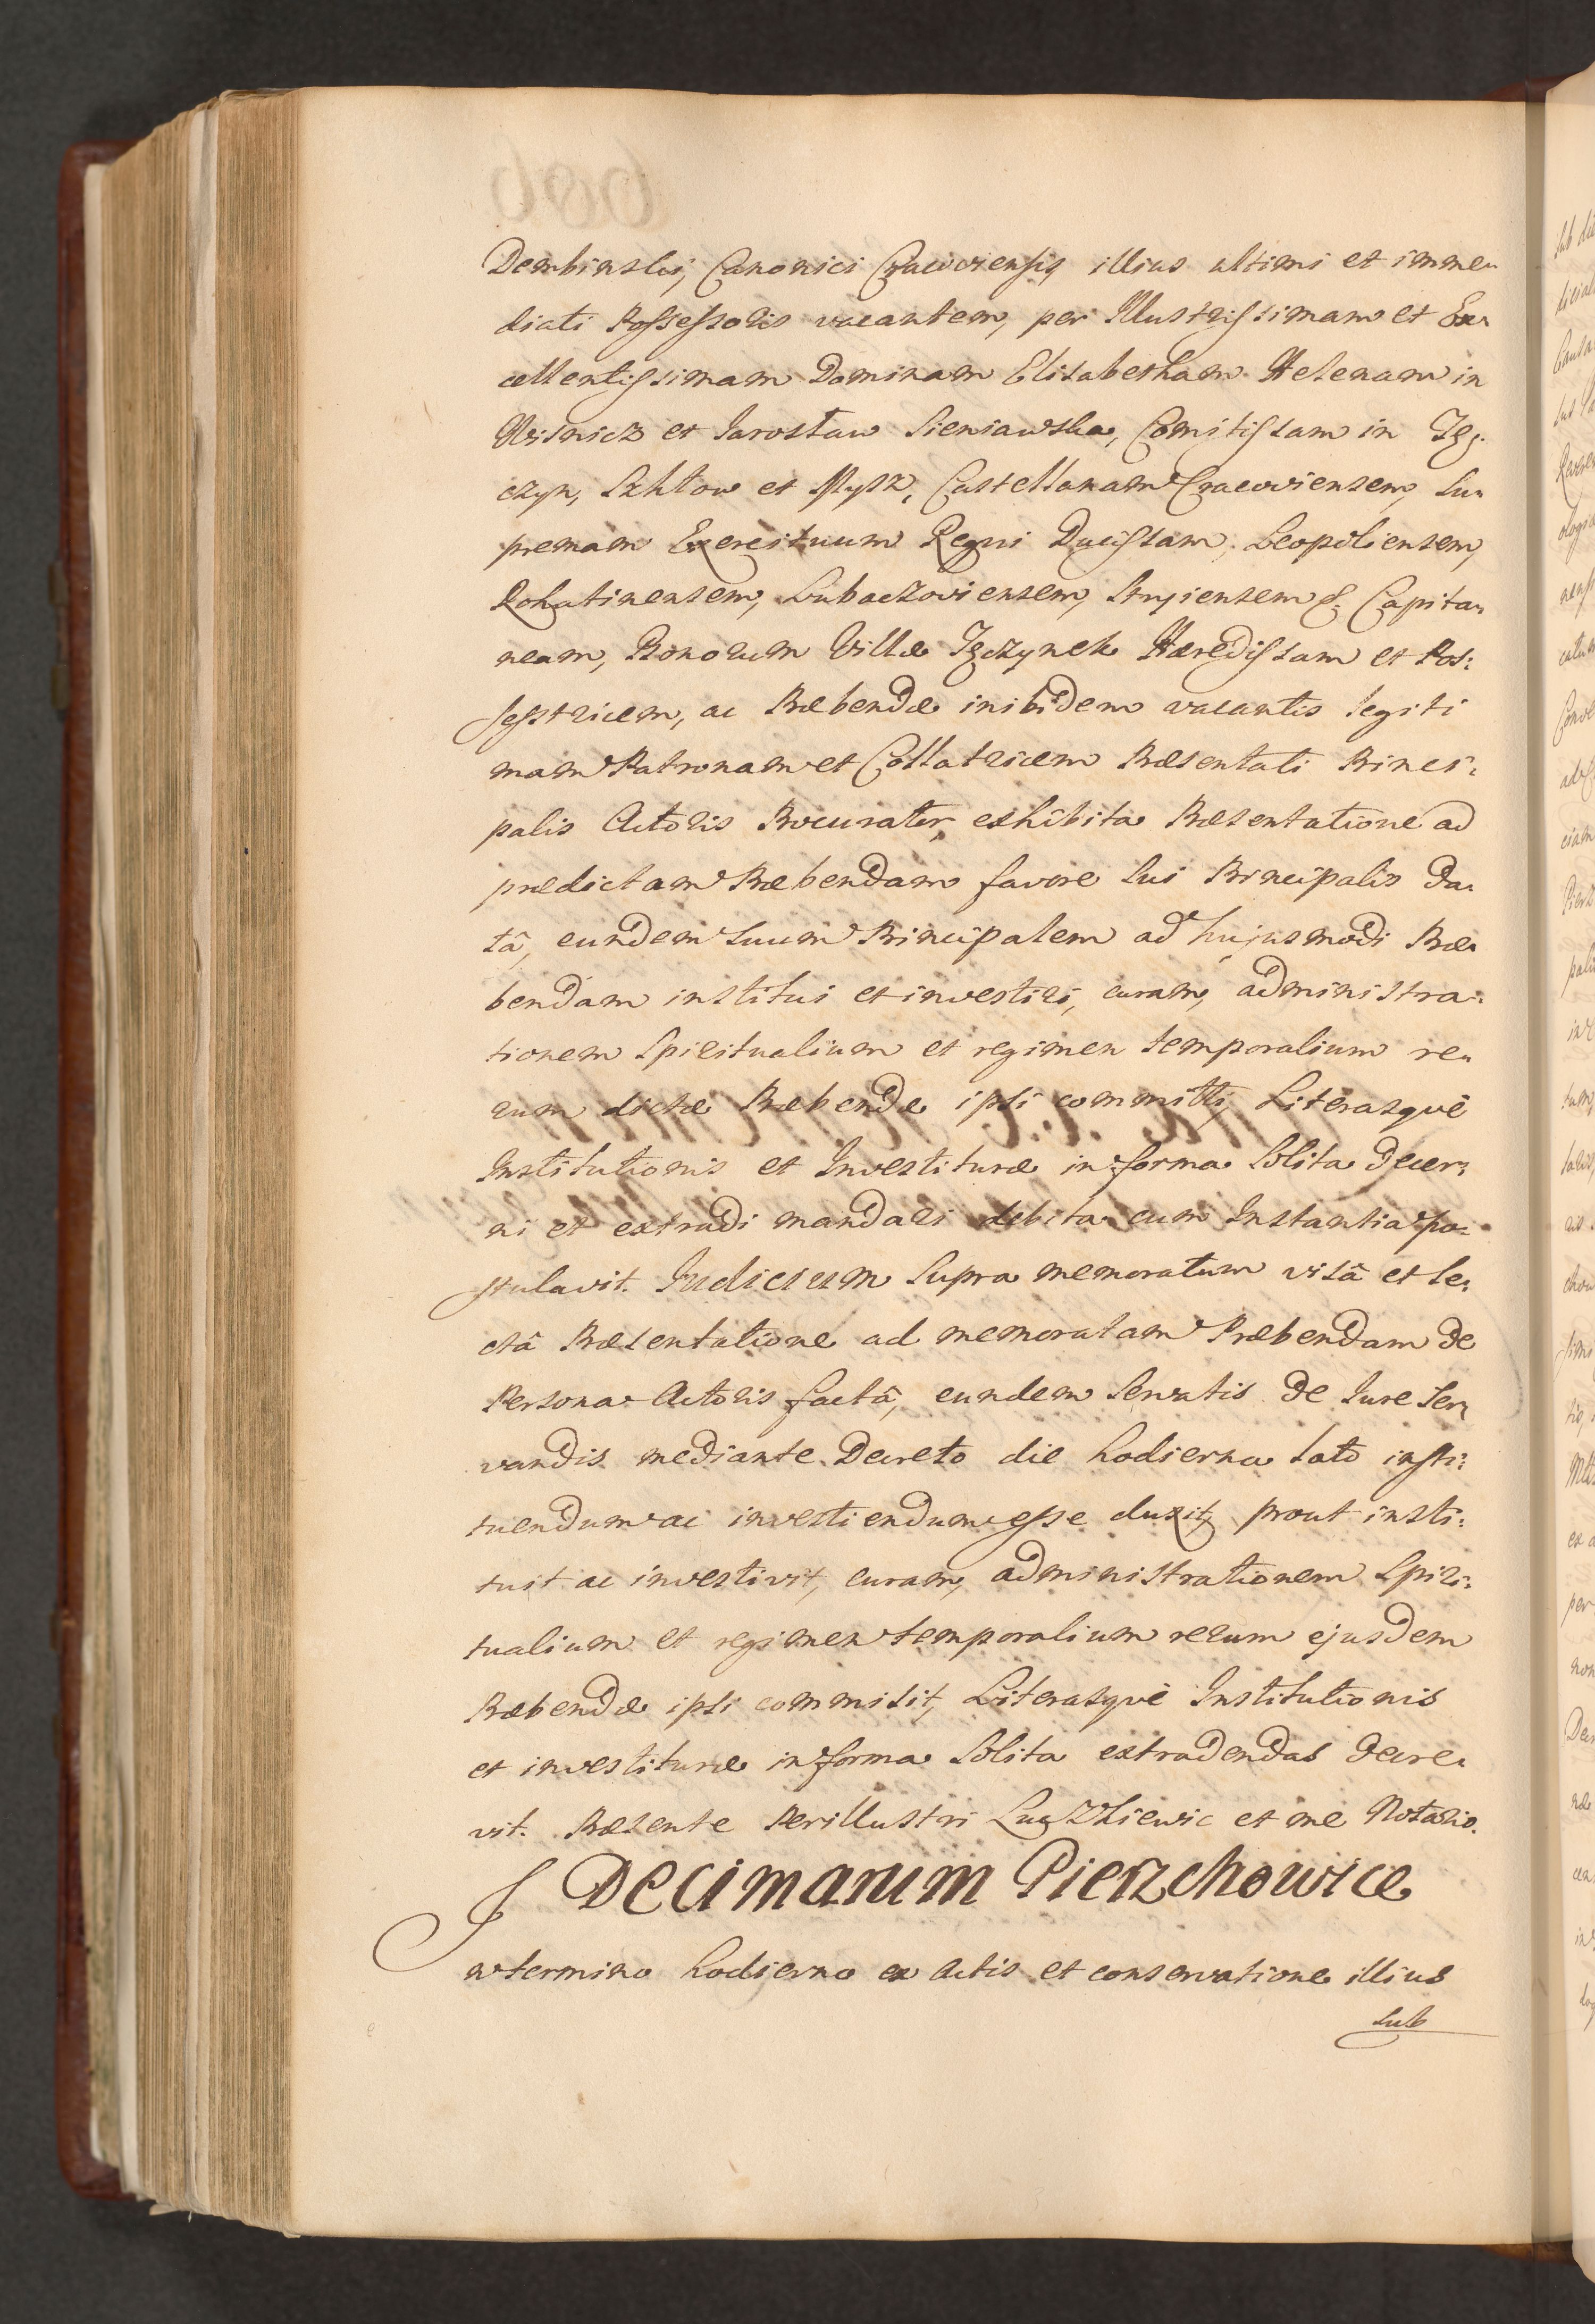 Dembinskij, Canonici Cracoviensis, illius ultimi et imme„
diati Possessoris vacantem, per Illustrissimam et Ex„
cellentissimam Dominam Elisabetham Helenam in
Wisnicz et Jarostaw Sieniawska, Comitissam in Tę„
czyn, Szkłow et Mysz, Castellanam Cracoviensem, Su„
premam Exercituum Regni Ducissam, Leopoliensem,
Rohatinensem, Lubaczoviensem, Stryiensem &. Capita„
neam, Bonorum Villæ Tęczynek Hæredissam et Pos:
sesstricem, ac Præbendæ inibidem vacantis legiti
mam Patronam et Collatricem Præsentati Princi„
palis Actoris Procurator, exhibita Præsentatione ad
prædictam Præbendam favore sui Principalis da„
tâ, eundem suum Principalem ad hujusmodi Præ„
bendam institui et investiri, curam, administra„
tionem Spiritualium et regimen temporalium re„
rum dictæ Præbendæ ipsi committi, Literasquè
Institutionis et Investituræ in forma solita decer„
ni et extradi mandari debita cum Instantia po„
stulavit. Judicium supra memoratum visâ et le„
ctâ Præsentatione ad memoratam Præbendam de
Persona Actoris factâ, eundem servatis de Jure ser„
vandis mediante Decreto die hodierna lato insti:
tuendum ac investiendum esse duxit, prout insti:
tuit ac investivit, curam, administrationem Spiri:
tualium et regimen temporalium rerum ejusdem
Præbendæ ipsi commisit, Literasquè Institutionis
et investituræ in forma solita extradendas decre„
vit. Præsente Perillustri Luczkiewic et me Notario.
Decimarum Pierzchowice
In termino hodierno ex Actis et conservatione illius
sub